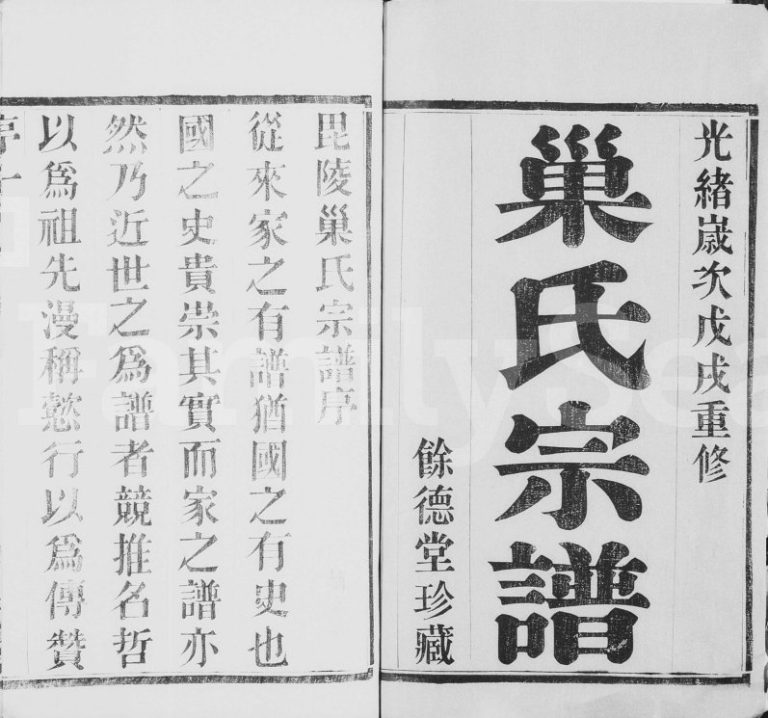 光緒歲次戊戌重修
巢氏宗譜
餘德堂珍藏
毘陵巢氏宗譜序
從來家之有譜猶國之有史也
國之史貴崇其實而家之譜亦
然乃近世之為譜者競推名哲
以為祖先漫稱懿行以為傳贊
FamilySea